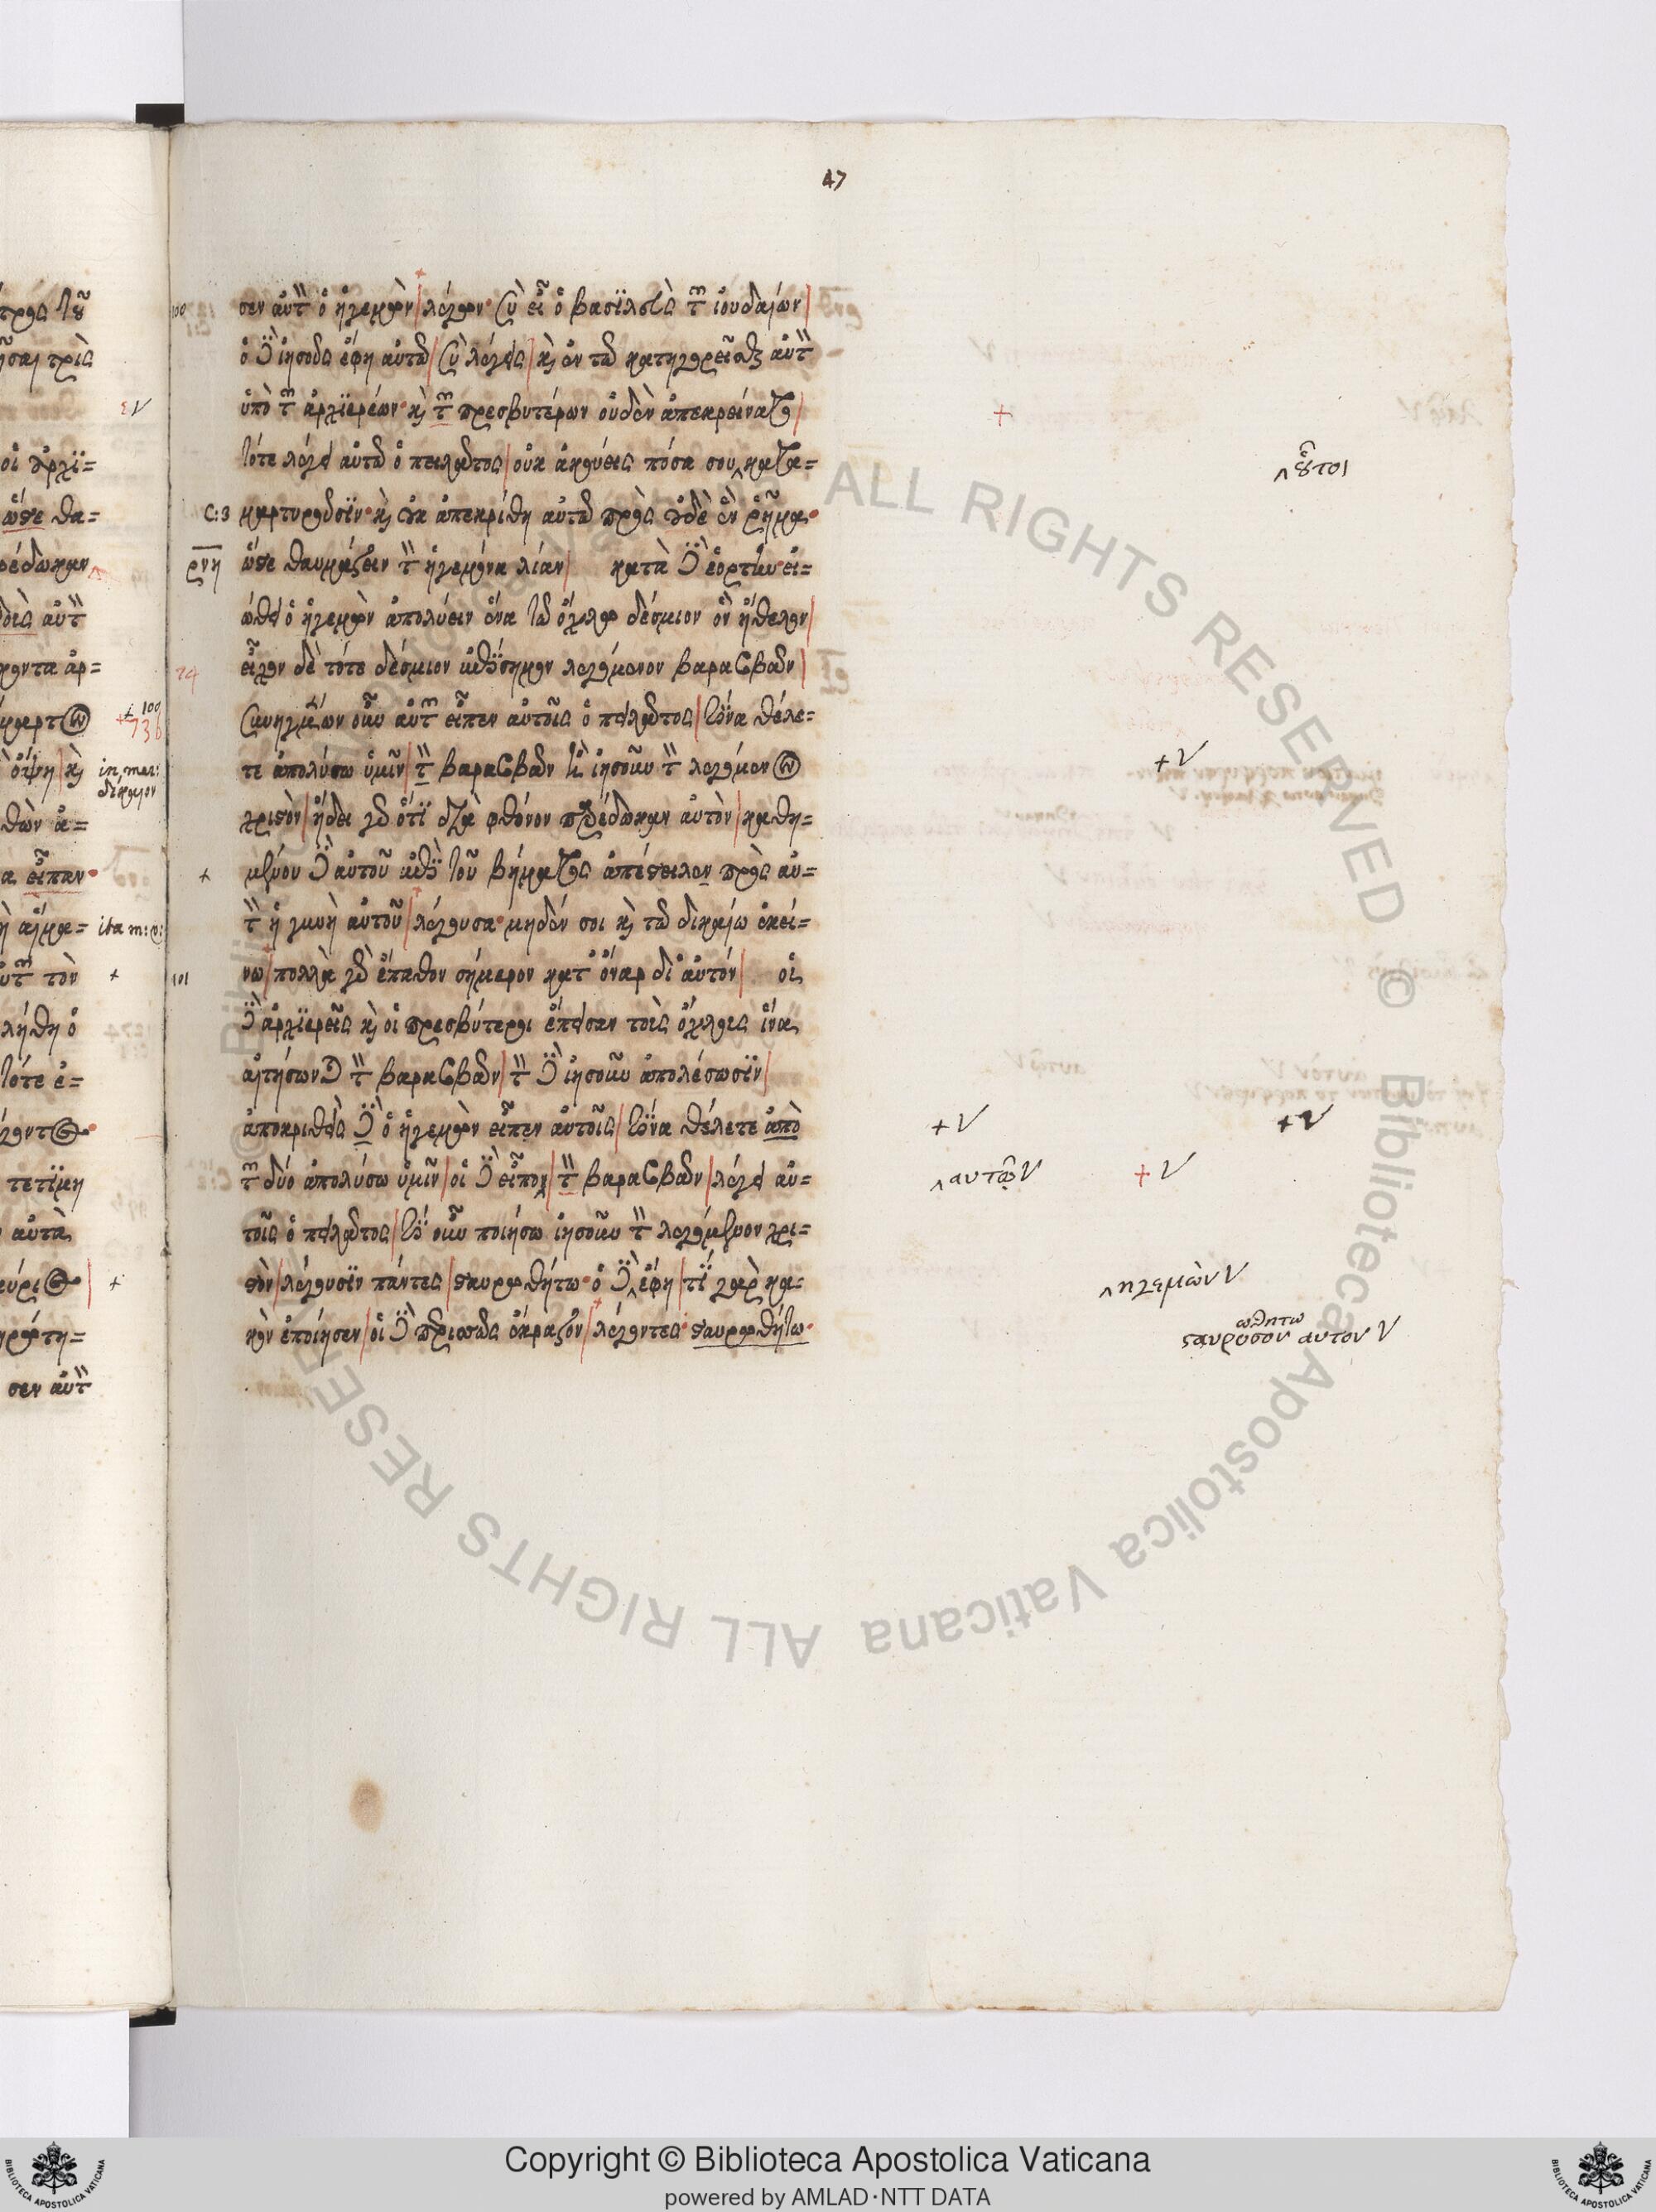 47
σεν αὐτὸν ὁ ἡγεμὼν λέγων· Σὺ εἶ ὁ βασϊλεὺς τῶν ἰουδαίων
ὁ δὲ ἰησοῦς ἔφη αὐτῶ Σὺ λέγεις κὶ ἐν τῶ κατηγορεῖσθαι αὐτὸν
ὑπὸ τῶν ἀρχϊερέων· κὶ τῶν πρεσβυτέρων οὐδὲν ἀπεκρείνατο
τότε λέγει αὐτῶ ὁ πειλᾶτος οὐκ ἀκούεις πόσα σου κατα=
^οὗτοι
C:3 μαρτυροῦσϊν· κὶ οὐκ ἀπεκρίθη αὐτῶ πρὸς οὐδὲ ἓν ῥῆμα·
ρνη ὥστε θαυμάζειν τὸν ἡγεμόνα λίαν κατὰ δὲ ἑορτὴν εἰ=
ώθει ὁ ἡγεμὼν ἀπολύειν ἕνα τῶ ὄχλω δέσμιον ὃν ἤθελον
74 εἶχον δὲ τότε δέσμιον ἐπίσημον λεγόμενον βαραββᾶν
Συνηγμένων οὖν αὐτῶν εἶπεν αὐτοῖς ὁ πειλᾶτος τίνα θέλε=
τε ἀπολύσω ὑμῖν τὸν βαραββᾶν ἢ ἰησοῦν τὸν λεγόμενον
+V
χριστὸν ἤδει γὰρ ὅτϊ διὰ φθόνον παρέδωκαν αὐτὸν καθη=
+ μένου δὲ αὐτοῦ ἐπὶ τοῦ βήματος ἀπέστειλεν πρὸς αὐ=
τὸν ἡ γυνὴ αὐτοῦ λέγουσα· μηδέν σοι κὶ τῶ δικαίω ἐκεί=
101 νω πολλὰ γὰρ ἔπαθον σήμερον κατ' ὄναρ δι' αὐτόν οἱ
δὲ ἀρχϊερεῖς κὶ οἱ πρεσβύτεροι ἔπεισαν τοὺς ὄχλους ἵνα
αἰτήσωνται τὸν βαραββᾶν τὸν δὲ ἰησοῦν ἀπολέσωσϊν
ἀποκριθεὶς δὲ ὁ ἡγεμὼν εἶπεν αὐτοῖς τίνα θέλετε ἀπὸ
+V +V
τῶν δύο ἀπολύσω ὑμῖν οἱ δὲ εἶπον τὸν βαραββᾶν λέγει αὐ=
^αυτῶV +V
τοῖς ὁ πειλᾶτος τί οὖν ποιήσω ἰησοῦν τὸν λεγόμενον χρι=
στὸν λέγουσϊν πάντες σταυρωθήτω· ὁ δὲ ἔφη τί γὰρ κα=
^ηγεμὼνV
κὸν ἐποίησεν οἱ δὲ περισσῶς ἔκραζον λέγοντες· σταυρωθήτω·
ωθητω
σταυροσον αυτον V
Copyright © Biblioteca Apostolica Vaticana
powered by AMLAD·NTT DATA